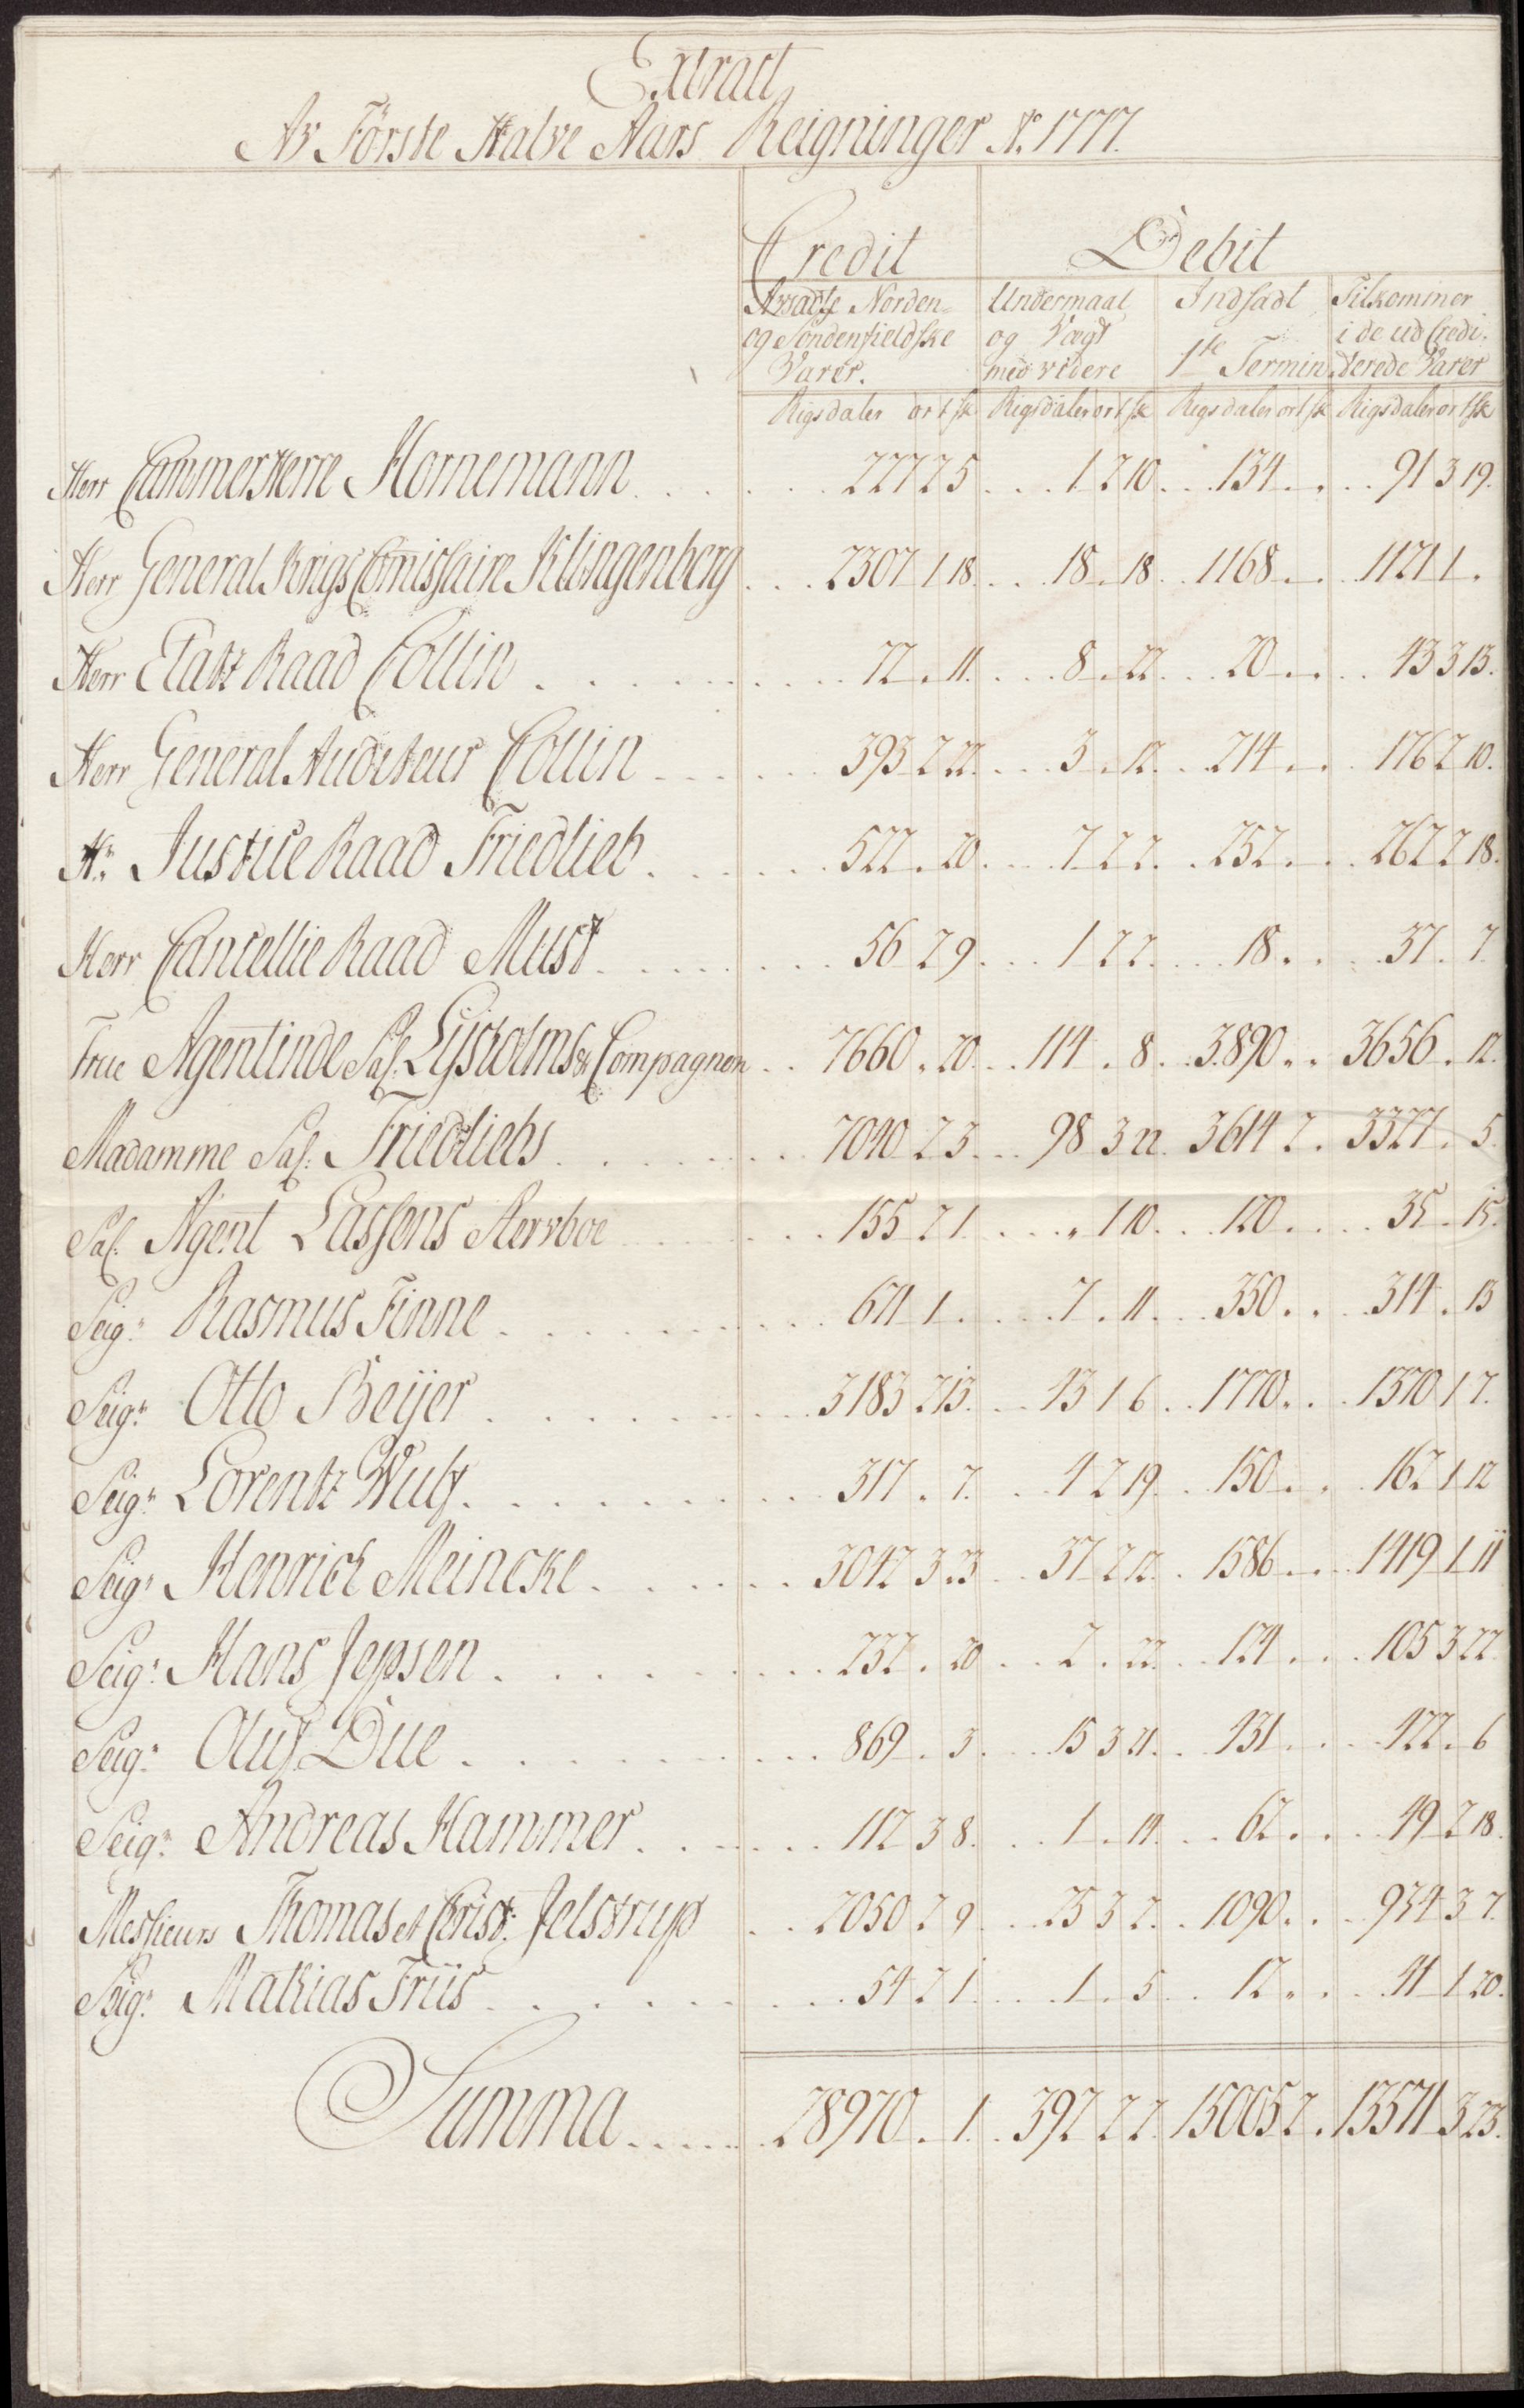 Extract
Av Förste Halve Aars Reigninger Ao 1777.
Credit Debit
Avsadte Norden= Undermaal Indsadt Tilkommer
og Søndenfieldske og Vægt i de ud Credi-
Varer. med videre 1ste Termin terede Varer
Rigsdaler ort sk Rigsdaler ort sk Rigsdaler ort sk Rigsdaler ort sk
Herr CammerHerre Hornemann . . . 227 2 5 . . . 1 2 10 . . 134 . . . 91 3 19.
Herr General KrigsComissaire Klingenberg . . . 2307 1 18 . . . 18 . 18 . . 1168 . . . 1121 1 .
Herr Etatz Raad Collin . . . 72 . 11 . . . 8 . 22 . . 20 . . . 43 3 13.
Herr General Auditeur Collin . . . 393 2 22 . . . 3 . 12 . . 214 . . . 176 2 10.
Hr: Justice Raad Friedlieb . . . 522 . 20 . . . 7 2 2 . . 252 . . . 262 2 18.
Herr Cancellie Raad Must . . . 56 2 9 . . . 1 2 2 . . 18 . . . 37 . 7
Frue Agentinde Sal: Lysholms & Compagnon . . 7660 . 20 . . 114 . 8 . . 3890 . . 3656 . 12.
Madamme Sal: Friedliebs . . . 7040 2 3 . . . 98 3 22 3614 2 . 3327 . 5.
Sal: Agent Lassens Stervboe . . . 155 2 1 . . . . 1 10 . . 120 . . . 35 . 15.
Seigr: Rasmus Finne . . . 671 1 . . . 7 . 11 . . 350 . . 314 . 13
Seigr: Otto Beÿer . . . 3183 2 13 . . . 43 1 6 . . 1770 . . 1370 1 7.
Seigr: Lorentz Wulf . . . 317 . 7 . . . 4 2 19 . . 150 . . . 162 1 12
Seigr: Henrich Meincke . . . 3042 3 23 . . 37 2 12 . . 1586 . . . 1419 1 11
Seigr: Hans Jepsen . . . 232 . 20 . . . 2 . 22 . . 124 . . . 105 3 22.
Seigr: Oluf Due . . . 869 . 3 . . . 15 3 21 . . 431 . . . 422 . 6
Seigr: Andreas Hammer . . . 112 3 8 . . . 1 . 14 . . 62 . . . 49 2 18.
Messieurs Thomas et Christ: Jelstrup . . 2050 2 9 . . . 25 3 2 . . 1090 . . . 934 3 7.
Seigr: Mathias Friis . . . 54 2 1 . . . 1 . 5 . . 12 . . . 41 1 20.
Summa . . . 28970 . 1 . . 392 2 2 . 15005 2 . 13571 3 23.